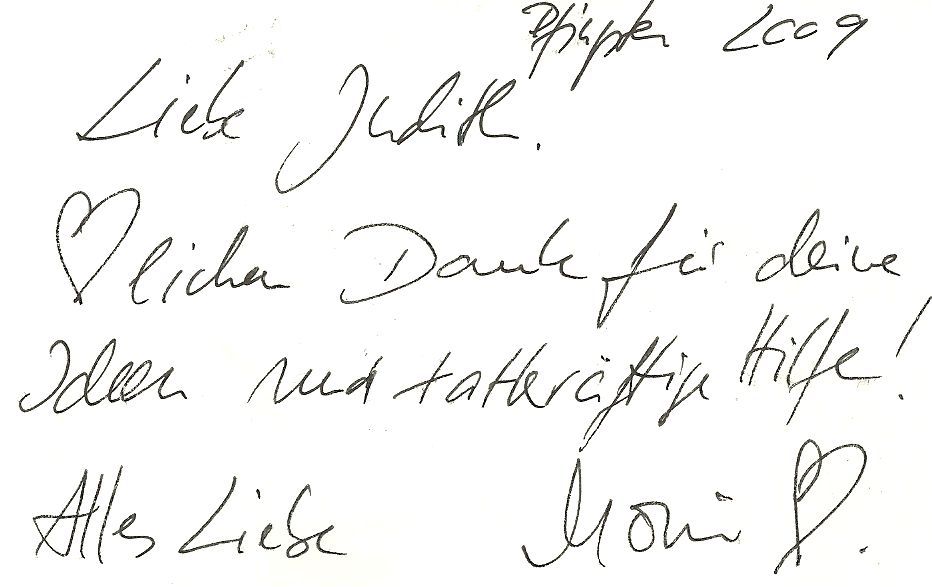 Pfingsten 2009
Liebe Judith.
♡lichen Dank für deine
Ideen und tatkräftige Hilfe!
Alles Liebe Moni ♡.